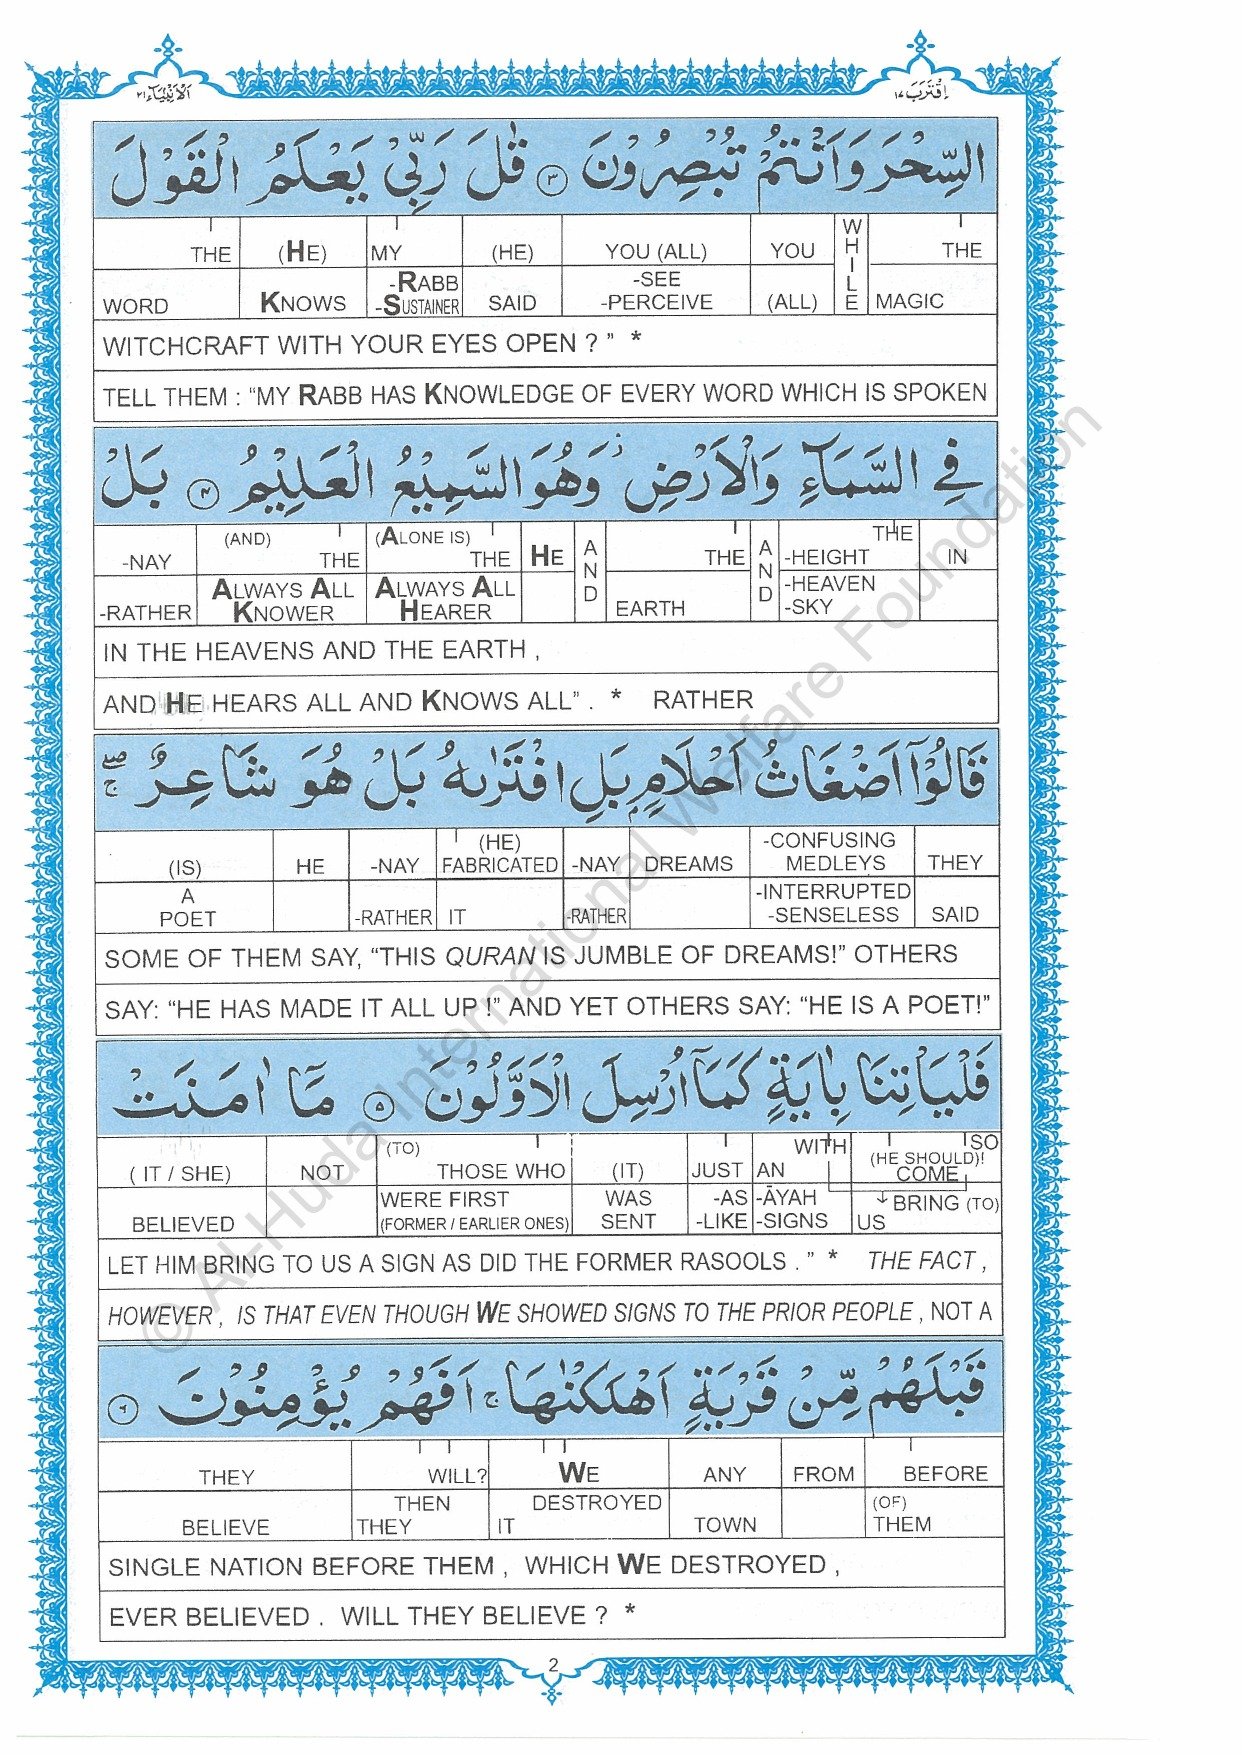 اَلْاَنْبِيَآء ٢١
اِقْتَرَبَ ١٧
السِّحْرَ وَاَنْتُمْ تُبْصِرُوْنَ ٣ قٰلَ رَبِّيْ يَعْلَمُ الْقَوْلَ
THE (HE) MY (HE) YOU (ALL) YOU WHILE THE
WORD KNOWS -RABB -SUSTAINER SAID -SEE -PERCEIVE (ALL) MAGIC
WITCHCRAFT WITH YOUR EYES OPEN ? ” *
TELL THEM : “MY RABB HAS KNOWLEDGE OF EVERY WORD WHICH IS SPOKEN
فِي السَّمَآءِ وَالْاَرْضِ ز وَهُوَ السَّمِيْعُ الْعَلِيْمُ ٤ بَلْ
-NAY (AND) THE (ALONE IS) THE HE AND THE AND THE -HEIGHT IN
-RATHER ALWAYS ALL KNOWER ALWAYS ALL HEARER EARTH -HEAVEN -SKY
IN THE HEAVENS AND THE EARTH ,
AND HE HEARS ALL AND KNOWS ALL” . * RATHER
قَالُوْٓا اَضْغَاثُ اَحْلَامٍ بَلِ افْتَرٰىهُ بَلْ هُوَ شَاعِرٌ ۖۚ
(IS) HE -NAY (HE) FABRICATED -NAY DREAMS -CONFUSING MEDLEYS THEY
A POET -RATHER IT -RATHER -INTERRUPTED -SENSELESS SAID
SOME OF THEM SAY, “THIS QURAN IS JUMBLE OF DREAMS!” OTHERS
SAY: “HE HAS MADE IT ALL UP !” AND YET OTHERS SAY: “HE IS A POET!”
فَلْيَاْتِنَا بِاٰيَةٍ كَمَآ اُرْسِلَ الْاَوَّلُوْنَ ٥ مَآ اٰمَنَتْ
( IT / SHE) NOT (TO) THOSE WHO (IT) JUST WITH AN SO (HE SHOULD)! COME
BELIEVED WERE FIRST (FORMER / EARLIER ONES) WAS SENT -AS -LIKE -ĀYAH -SIGNS BRING (TO) US
LET HIM BRING TO US A SIGN AS DID THE FORMER RASOOLS . ” * THE FACT ,
HOWEVER , IS THAT EVEN THOUGH WE SHOWED SIGNS TO THE PRIOR PEOPLE , NOT A
قَبْلَهُمْ مِّنْ قَرْيَةٍ اَهْلَكْنٰهَا ج اَفَهُمْ يُؤْمِنُوْنَ ٦
THEY WILL? WE ANY FROM BEFORE
BELIEVE THEN THEY DESTROYED IT TOWN (OF) THEM
SINGLE NATION BEFORE THEM , WHICH WE DESTROYED ,
EVER BELIEVED . WILL THEY BELIEVE ? *
2
© Al-Huda International Welfare Foundation